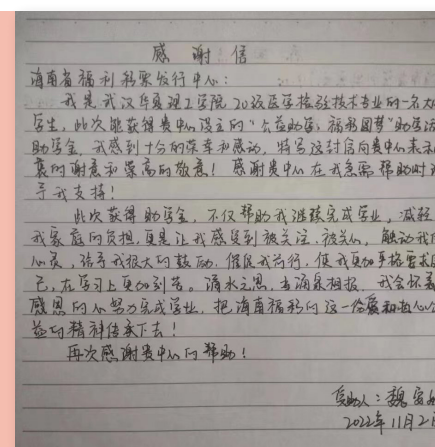 感谢信
海南省福利彩票发行中心：
我是武汉华夏理工学院20级医学检验技术专业的一名大
学生，此次能获得贵中心设立的“公益助学，福彩圆梦”助学活
助学金，我感到十分的荣幸和感动，特写这封信向贵中心表示
衷的谢意和崇高的敬意！感谢贵中心在我急需帮助时
予我支持！
此次获得助学金，不仅帮助我继续完成学业，减轻
我家庭的负担，更是让我感受到被关注、被关心，触动我的
心灵，给予我很大的鼓励，催促我前行，使我更加严格要求自
己，在学习上更加刻苦。滴水之恩，当涌泉相报，我会怀着
感恩的心努力完成学业，把海南福彩的这一份爱和热心公
益的精神传承下去！
再次感谢贵中心的帮助！
受助人：魏
2022年11月2